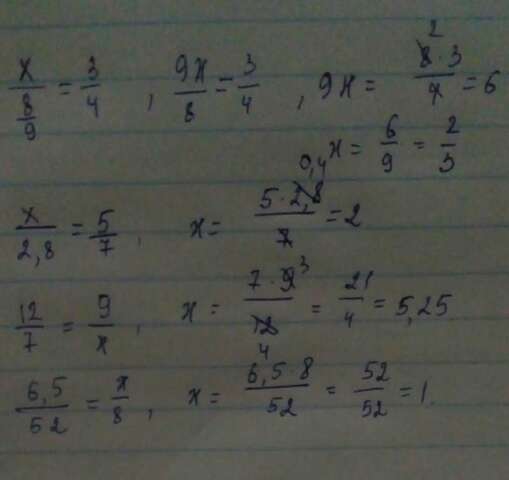 x/(8/9) = 3/4 , 9x/8 = 3/4 , 9x = 8·3/4 = 6 2
x = 6/9 = 2/3
x/2,8 = 5/7 , x = 5·2,8/7 = 2 0,4
12/7 = 9/x , x = 7·9/12 = 21/4 = 5,25 3 4
6,5/52 = x/8 , x = 6,5·8/52 = 52/52 = 1.